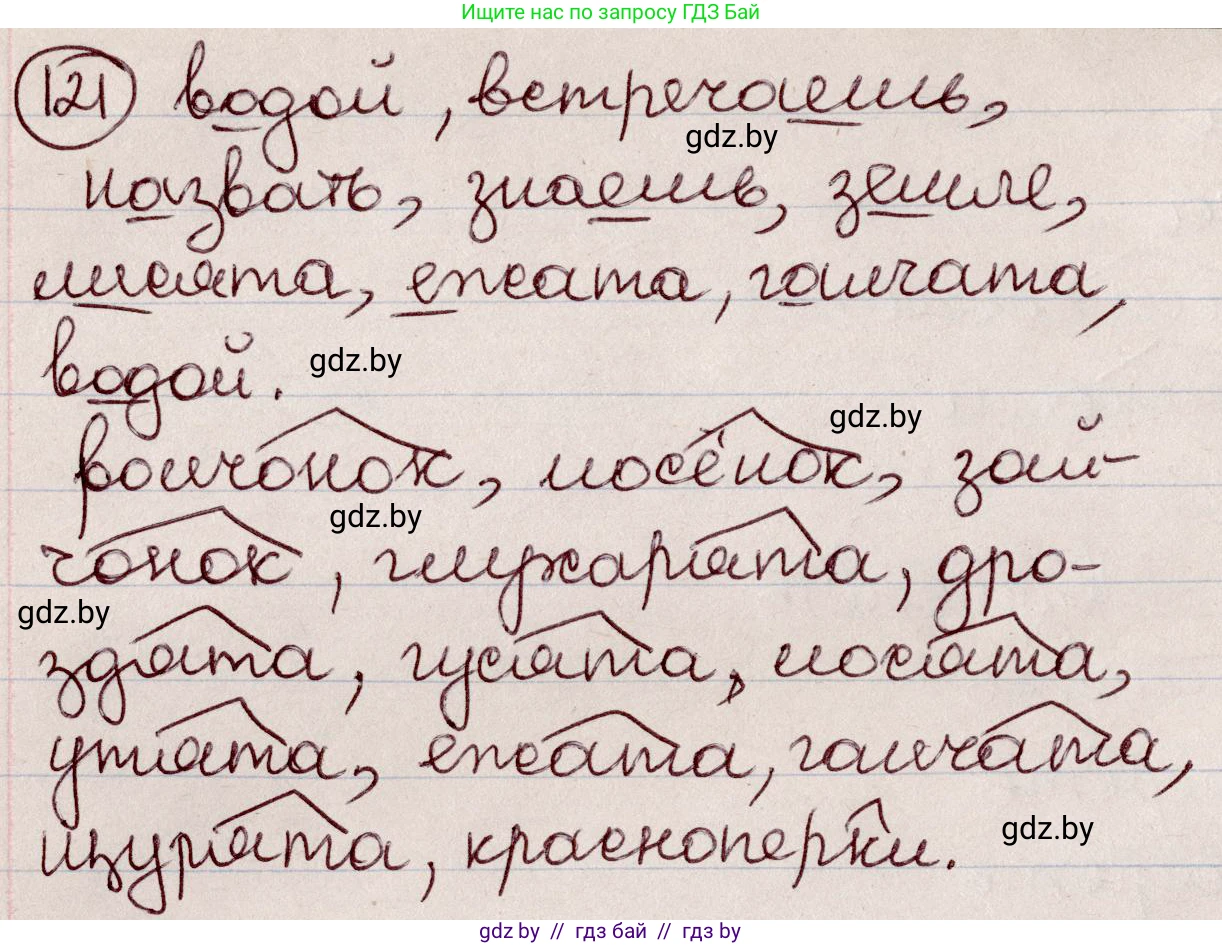 Ищите нас по запросу ГДЗ Бай
121 водой, встречаешь,
gdz.by
назвать, знаешь, земле,
лисята, ежата, галчата,
водой.
gdz.by
gdz.by
волчонок, лосёнок, зай-
gdz.by
чонок, глухарята, дро-
gdz.by
здята, гусята, лосята,
утята, ежата, галчата,
щурята, красноперки.
gdz.by
gdz by // гдз бай // гдз by